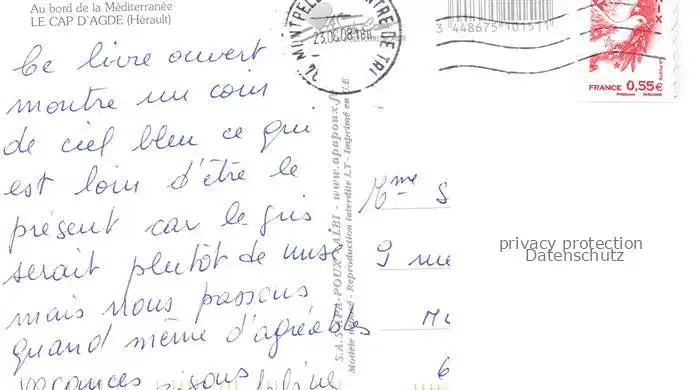 Au bord de la Méditerranée
LE CAP D'AGDE (Hérault)
Ce livre ouvert
montre un coin
de ciel bleu ce qui
est loin d'être le
présent car le gris
serait plutôt de mise
mais nous passons
quand même d'agréables
vacances
34 MONTPELLIER CENTRE DE TRI
23.06.08
3 448675 101511
FRANCE 0,55€
S.A.S. APA-POUX - ALBI - www.apapoux.fr
Modèle déposé - Reproduction interdite LT - Imprimé en U.E
Mme S
9 rue
privacy protection
Datenschutz